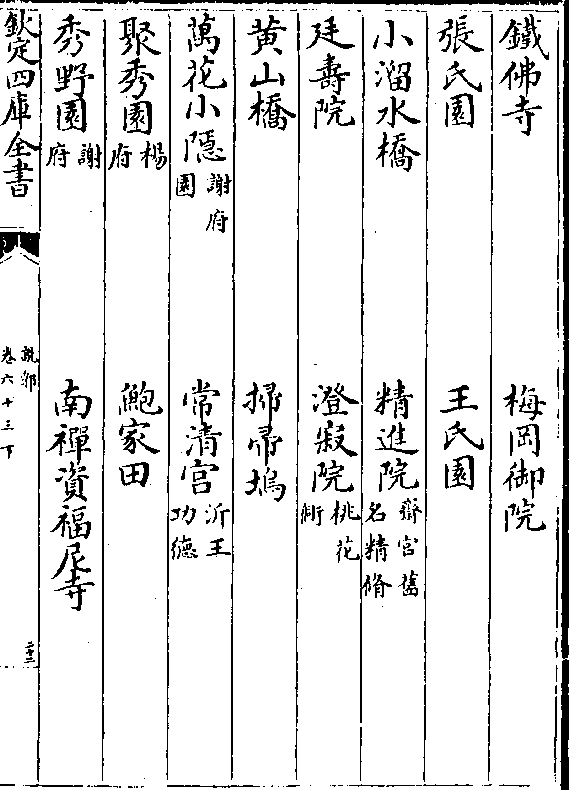 鐵佛寺　梅岡御院
張氏園　王氏園
小溜水橋　精進院齋宮舊名精脩
廷壽院　澄寂院桃花衕
黄山橋　掃帚塢
萬花小隱謝府園　常清宫沂王功德
聚秀園楊府　鮑家田
秀野園謝府　南禪資福尼寺
欽定四庫全書　說郛卷六十三下　二十三